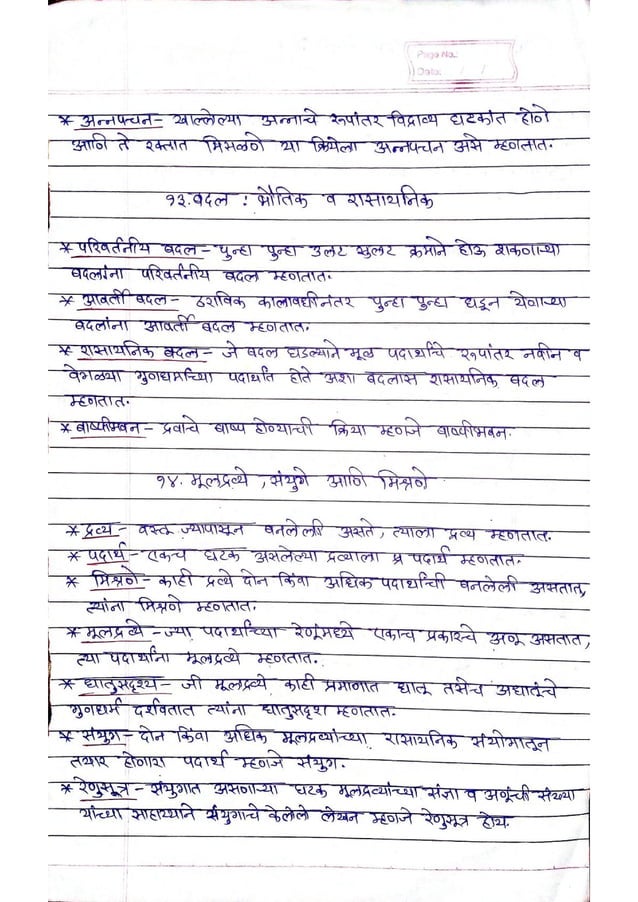 Page No.
Date: / /
* अन्नपचन- खाल्लेल्या अन्नाचे रूपांतर विद्राव्य घटकांत होणे
आणि ते रक्तात मिसळणे या क्रियेला अन्नपचन असे म्हणतात.
१३. बदल : भौतिक व रासायनिक
* परिवर्तनीय बदल - पुन्हा पुन्हा उलट सुलट क्रमाने होऊ शकणाऱ्या
बदलांना परिवर्तनीय बदल म्हणतात.
* आवर्ती बदल - ठराविक कालावधीनंतर पुन्हा पुन्हा घडून येणाऱ्या
बदलांना आवर्ती बदल म्हणतात.
* रासायनिक बदल - जे बदल घडल्याने मूळ पदार्थाचे रूपांतर नवीन व
वेगळ्या गुणधर्माच्या पदार्थात होते अशा बदलास रासायनिक बदल
म्हणतात.
* बाष्पीभवन - द्रवाचे बाष्प होण्याची क्रिया म्हणजे बाष्पीभवन.
१४. मूलद्रव्ये, संयुगे आणि मिश्रणे
* द्रव्य - वस्तू ज्यापासून बनलेली असते, त्याला द्रव्य म्हणतात.
* पदार्थ - एकच घटक असलेल्या द्रव्याला पदार्थ म्हणतात.
* मिश्रणे - काही द्रव्ये दोन किंवा अधिक पदार्थांची बनलेली असतात,
त्यांना मिश्रणे म्हणतात.
* मूलद्रव्ये - ज्या पदार्थाच्या रेणूंमध्ये एकाच प्रकारचे अणू असतात,
त्या पदार्थांना मूलद्रव्ये म्हणतात.
* धातुसदृश्य - जी मूलद्रव्ये काही प्रमाणात धातू तसेच अधातूंचे
गुणधर्म दर्शवितात त्यांना धातुसदृश म्हणतात.
* संयुग - दोन किंवा अधिक मूलद्रव्यांच्या रासायनिक संयोगातून
तयार होणारा पदार्थ म्हणजे संयुग.
* रेणुसूत्र - संयुगात असणाऱ्या घटक मूलद्रव्यांच्या संज्ञा व अणूंची संख्या
यांच्या साहाय्याने संयुगाचे केलेले लेखन म्हणजे रेणुसूत्र होय.